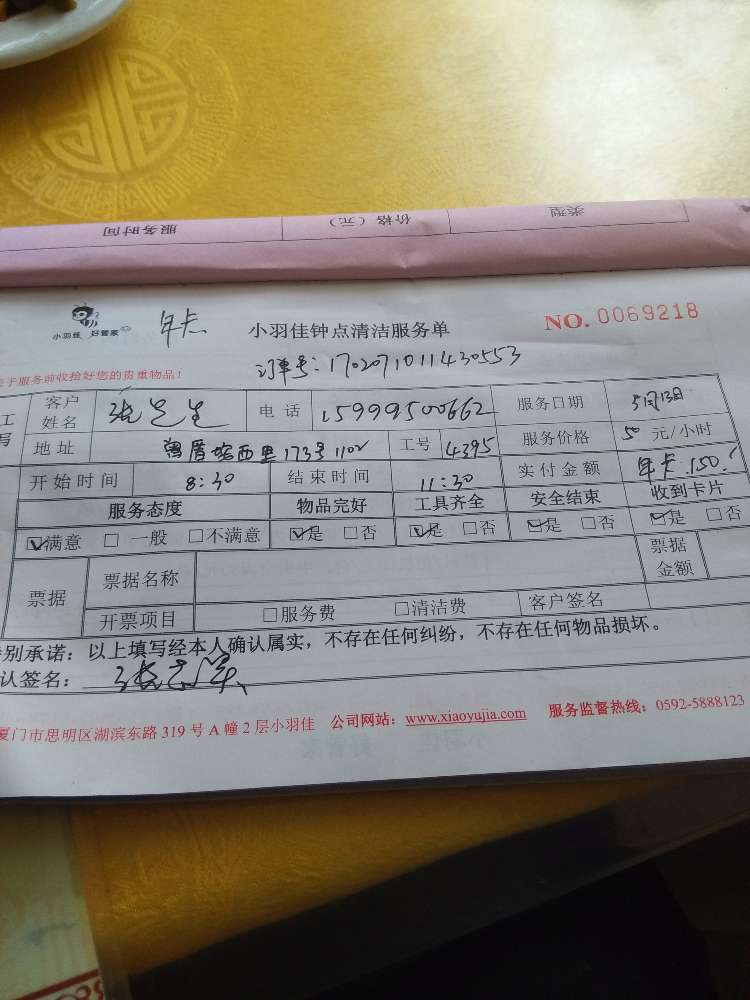 类型 价格（元） 服务时间
小羽佳 好管家 年卡 小羽佳钟点清洁服务单 NO. 0069218
订单号: 1702071011430553
于服务前收拾好您的贵重物品！
工 客户姓名 张先生 电话 15999500662 服务日期 5月13日
写 地址 曾厝垵西里173号1102 工号 4395 服务价格 50 元/小时
开始时间 8:30 结束时间 11:30 实付金额 年卡.150.
服务态度 物品完好 工具齐全 安全结束 收到卡片
☑满意 □ 一般 □不满意 ☑是 □否 ☑是 □否 ☑是 □否 ☑是 □否
票据 票据名称 票据金额
开票项目 □服务费 □清洁费 客户签名
别承诺：以上填写经本人确认属实，不存在任何纠纷，不存在任何物品损坏。
认签名：
厦门市思明区湖滨东路 319 号 A 幢 2 层小羽佳 公司网站：www.xiaoyujia.com 服务监督热线：0592-5888123